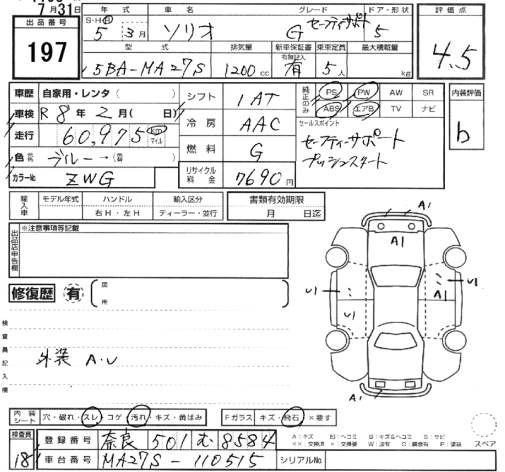 7月31日
出品番号
197
S・H・R
年式 車名 グレード ドア・形状
5 3月 ソリオ G セーフティサポート 5
型式 排気量 新車保証書 乗車定員 最大積載量
有無記入
5BA-MA27S 1200cc 有 5人 kg
評価点
4.5
車歴 自家用・レンタ
車検 R8年2月(日)
走行 60,975 km マイル
色 ブルー→(替)
カラーNo ZWG
シフト 1AT
冷房 AAC
燃料 G
リサイクル料金 7690円
純正のみ
PS PW AW SR
ABS エアB TV ナビ
セールスポイント
セーフティーサポート
プッシュスタート
内装評価
b
輸入車
モデル年式 ハンドル 輸入区分
右H・左H ディーラー・並行
書類有効期限
月 日迄
出品店申告欄
※注意事項等記載
修復歴 有
箇所
検査員記入欄
外装 A.U
A1
A1
U1
A1
U1
A1
内装シート 穴・破れ・スレ・コゲ・汚れ・キズ・黄ばみ
Fガラス キズ・飛石・×要す
検査員
18
登録番号 奈良 501 む 8584
車台番号 MA27S-110515
シリアルNo
A:キズ E:ヘコミ B:キズ&ヘコミ W:波有 S:サビ
XX:交換済 ×:交換要 W:波有 C:腐食有 P:塗装
スペア